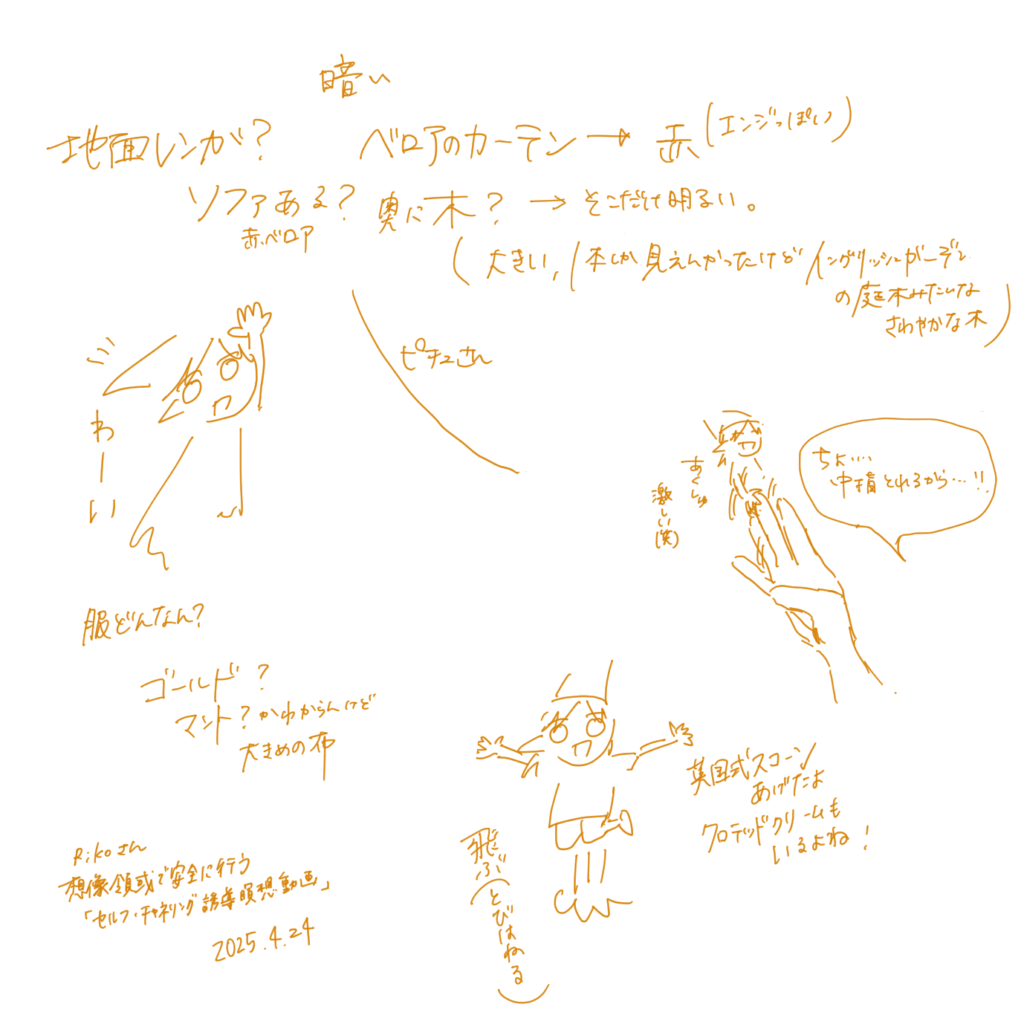 暗い
地面レンガ?
ベロアのカーテン→赤(エンジっぽい)
ソファある?
赤ベロア
奥に木?→そこだけ明るい。
(大きい,1本しか見えんかったけどイングリッシュガーデン
の庭木みたいな
さわやかな木)
ピチューさん
わーい
ちょ....
中指とれるから...!!
あくしゅ
激しい(笑)
服どんなん?
ゴールド?
マント?かわからんけど
大きめの布
英国式スコーン
あげたよ
クロテッドクリームも
いるよね!
飛ぶ(とびはねる)
Rikoさん
想像領域で安全に行う
「セルフ・チャネリング誘導瞑想動画」
2025.4.24